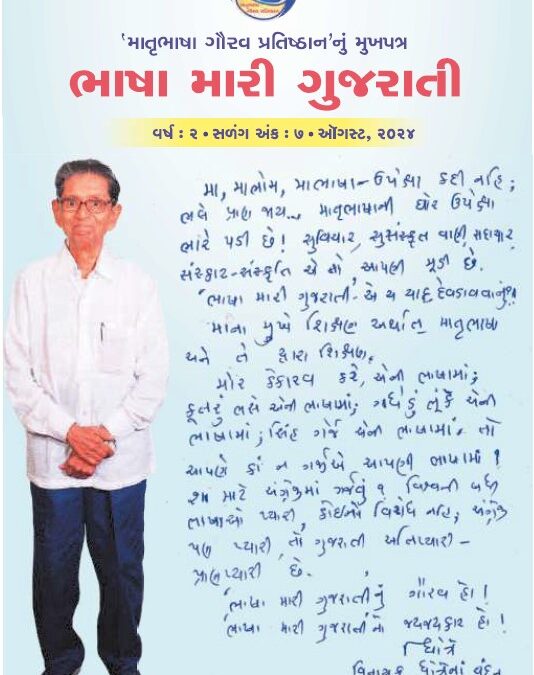 'માતૃભાષા ગૌરવ પ્રતિષ્ઠાન'નું મુખપત્ર
ભાષા મારી ગુજરાતી
વર્ષ : ૨ • સળંગ અંક : ૭ • ઑગસ્ટ, ૨૦૨૪
મા, માભોમ, માભાષા-ઉપેક્ષા કદી નહિ;
ભલે પ્રાણ જાય.. માતૃભાષાની ઘોર ઉપેક્ષા
ભારે પડી છે! સુવિચાર, સુસંસ્કૃત વાણી, સદાચાર
સંસ્કાર-સંસ્કૃતિ એ તો, આપણી મૂડી છે.
'ભાષા મારી ગુજરાતી- એ ય યાદ દેવડાવવાનું?!
માના મુખે શિક્ષણ અર્થાત્ માતૃભાષા
અને તે દ્વારા શિક્ષણ.
મોર કેકારવ કરે, એની ભાષામાં;
કૂતરું ભસે એની ભાષામાં; ગધેડું ભૂંકે એની
ભાષામાં; સિંહ ગર્જે એની ભાષામાં- તો
આપણે કાં ન ગર્જીએ આપણી ભાષામાં?
શા માટે અંગ્રેજીમાં ગર્જવું? વિશ્વની બધી
ભાષાઓ પ્યારી, કોઈનો વિરોધ નહિ; અંગ્રેજી
પણ પ્યારી, તો ગુજરાતી અતિપ્યારી-
પ્રાણપ્યારી છે.
'ભાષા મારી ગુજરાતી'નું ગૌરવ હો!
'ભાષા મારી ગુજરાતી'નો જયજયકાર હો!
ધોત્રે
વિનાયક ધોત્રેનાં વંદન